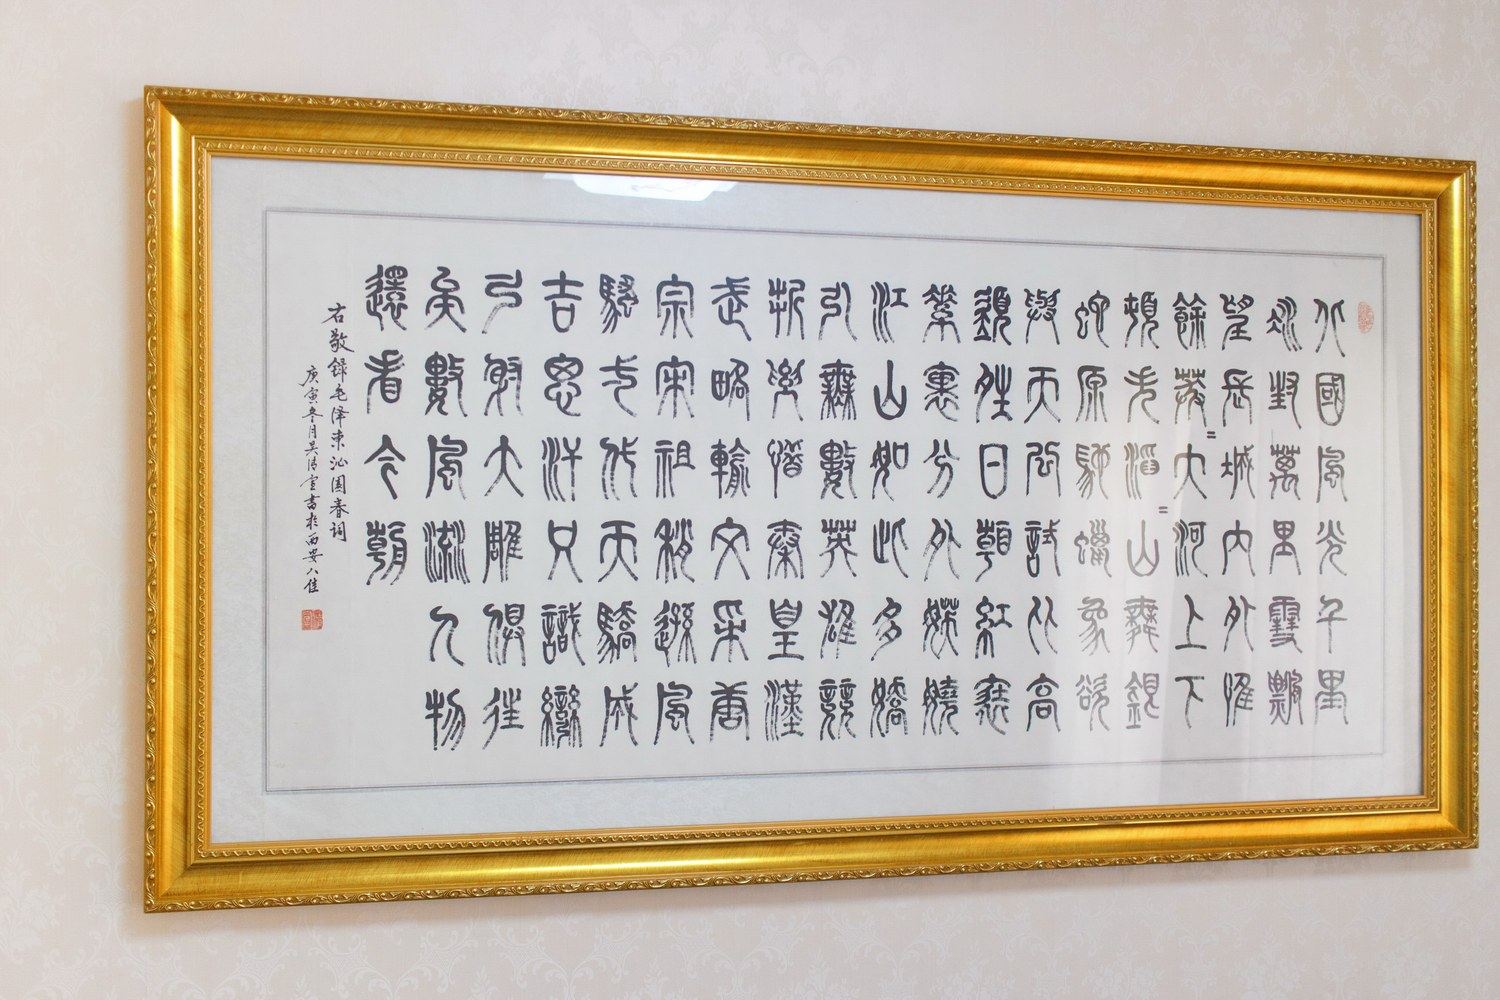 北國風光千里
冰封萬里雪飄
望長城内外惟
餘莽=大河上下
頓失滔=山舞銀
蛇原馳蠟象欲
與天公試比高
須晴日看紅裝
素裹分外妖嬈
江山如此多嬌
引無數英雄競
折腰惜秦皇漢
武略輸文采唐
宗宋祖稍遜風
騷一代天驕成
吉思汗只識彎
弓射大雕俱往
矣數風流人物
還看今朝
右敬録毛泽東沁園春詞
庚寅冬月吴清宣書於西安八佳